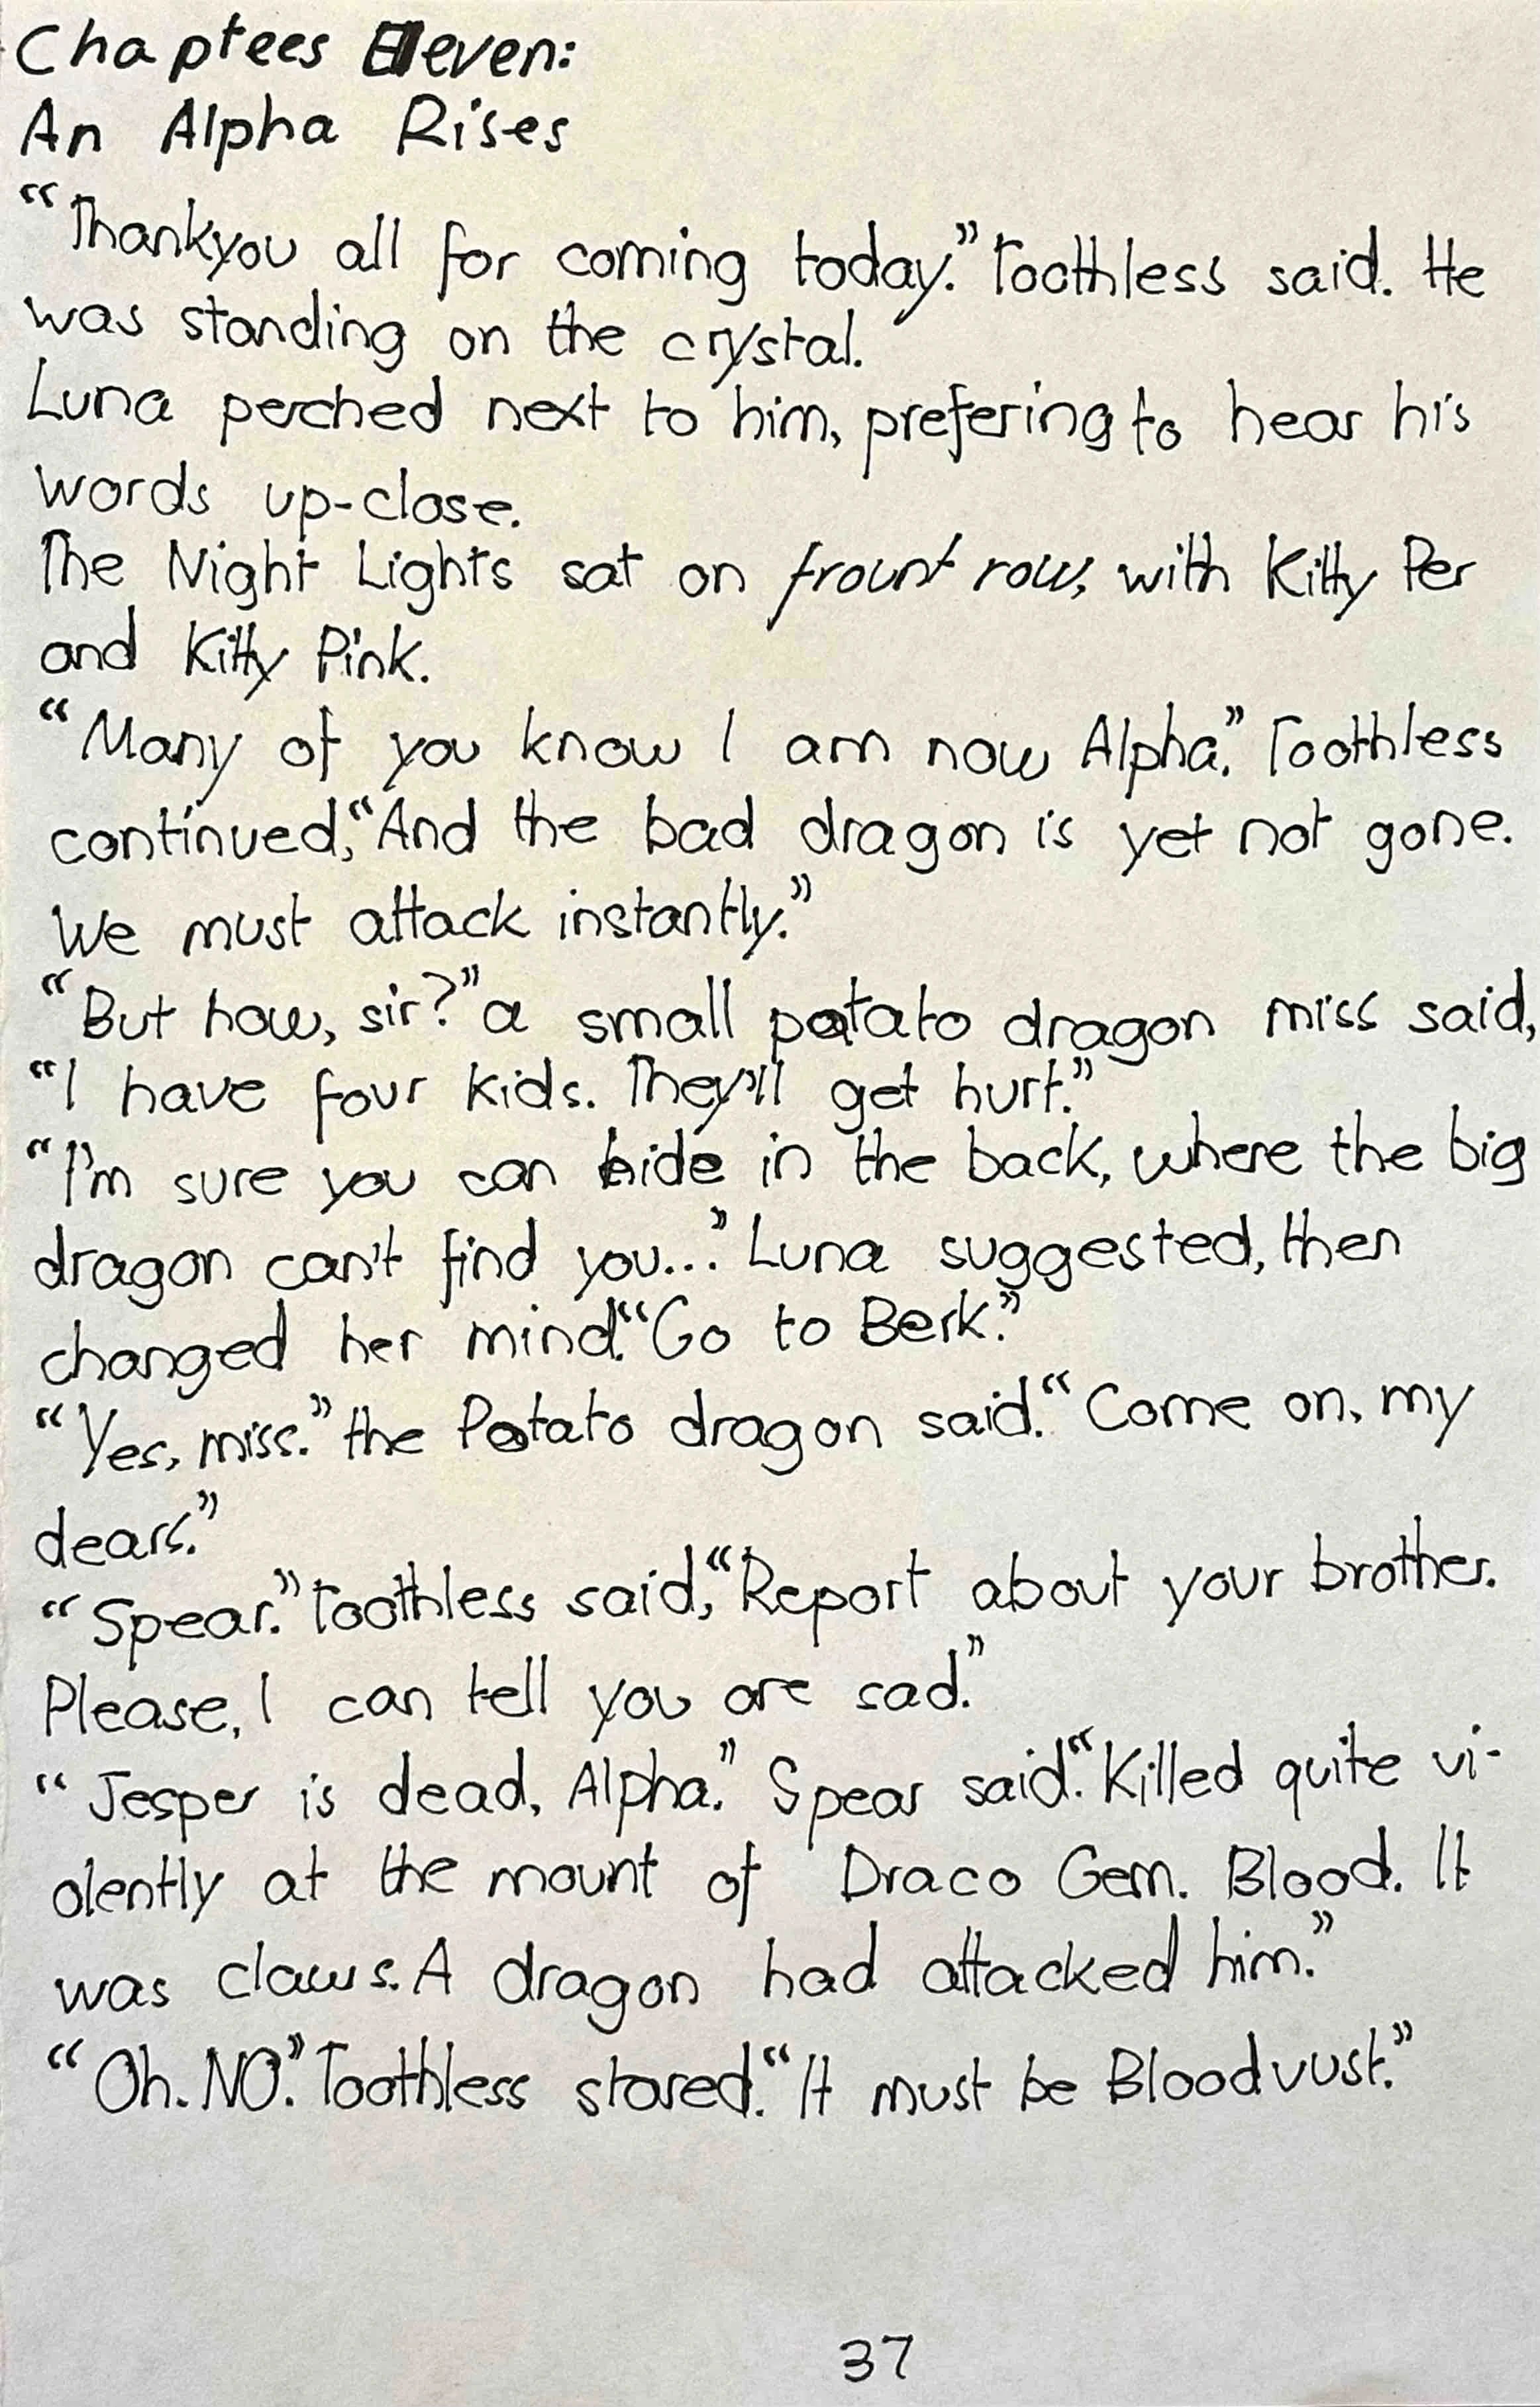 Chaptees Eleven:
An Alpha Rises
“Thankyou all for coming today.” Toothless said. He
was standing on the crystal.
Luna perched next to him, prefering to hear his
words up-close.
The Night Lights sat on frount row, with Kitty Per
and Kitty Pink.
“Many of you know I am now Alpha.” Toothless
continued, “And the bad dragon is yet not gone.
We must attack instantly.”
“But how, sir?” a small potato dragon miss said,
“I have four kids. They'll get hurt.”
“I'm sure you can hide in the back, where the big
dragon can't find you...” Luna suggested, then
changed her mind. “Go to Berk.”
“Yes, miss.” the Potato dragon said. “Come on, my
dears.”
“Spear.” Toothless said, “Report about your brother.
Please, I can tell you are sad.”
“Jesper is dead, Alpha.” Spear said. “Killed quite vi-
olently at the mount of Draco Gem. Blood. It
was claws. A dragon had attacked him.”
“Oh. NO.” Toothless stared. “It must be Bloodvust.”
37